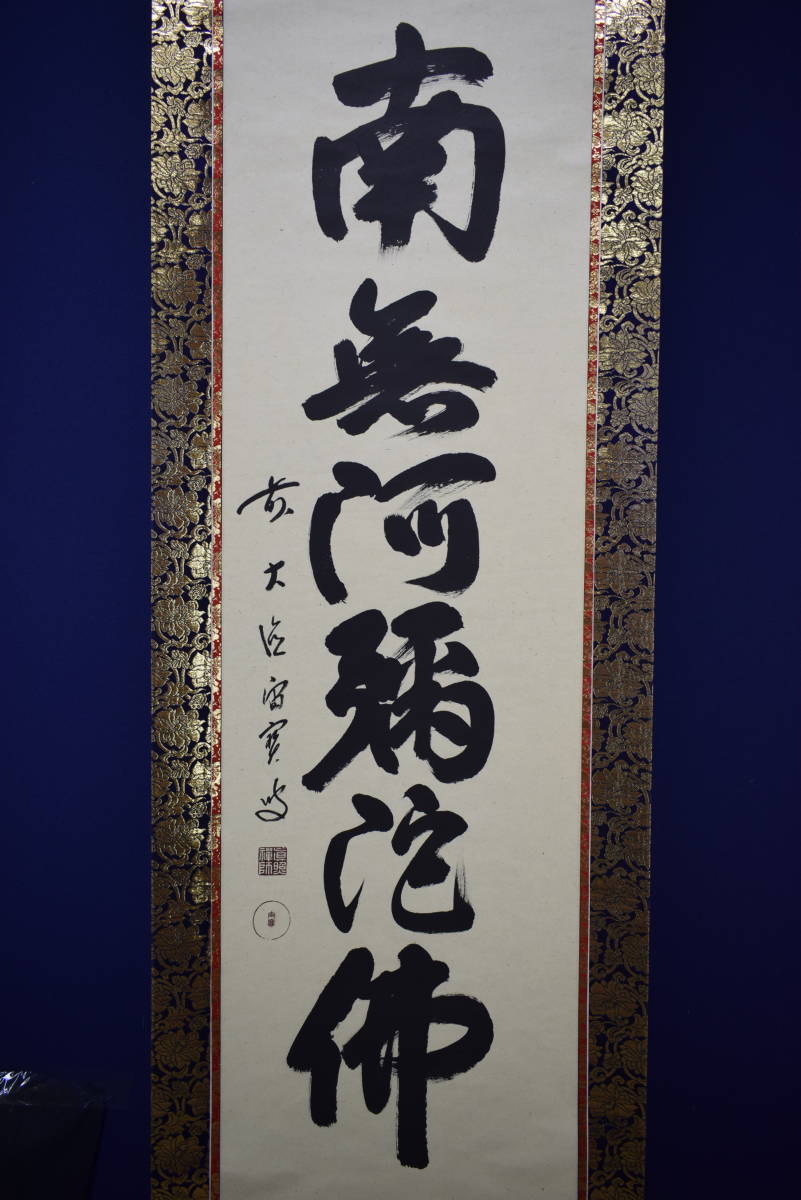 南無阿彌陀佛
前大徳宙寶叟